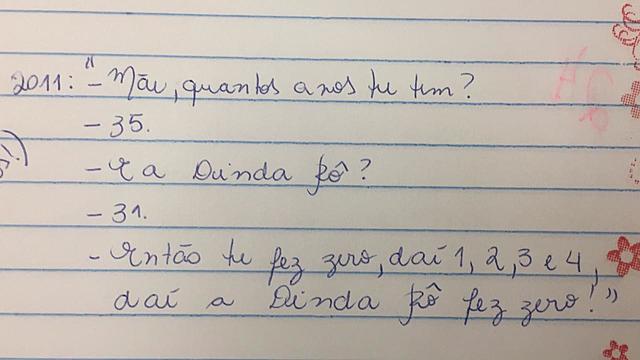 2011: "- Mãe, quantos anos tu tem?
- 35.
- E a Dinda Rô?
- 31.
- Então tu fez zero, daí 1, 2, 3 e 4,
daí a Dinda Rô fez zero!"